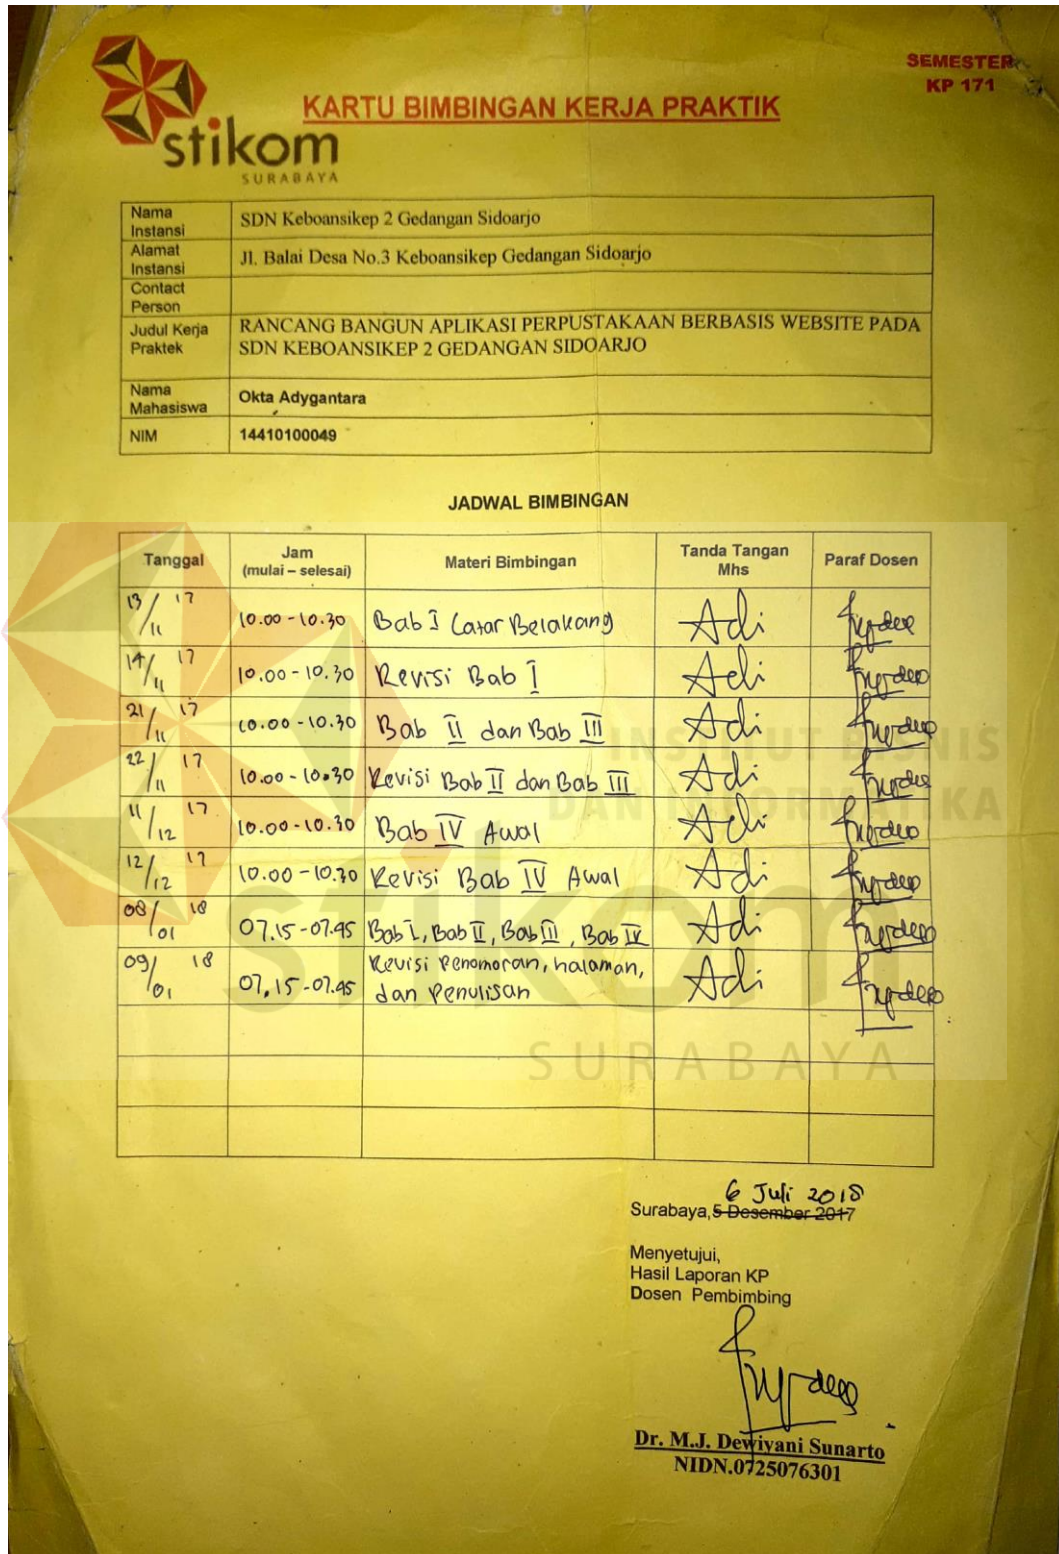 SEMESTER
KP 171
KARTU BIMBINGAN KERJA PRAKTIK
stikom
SURABAYA
Nama Instansi SDN Keboansikep 2 Gedangan Sidoarjo
Alamat Instansi Jl. Balai Desa No.3 Keboansikep Gedangan Sidoarjo
Contact Person
Judul Kerja Praktek RANCANG BANGUN APLIKASI PERPUSTAKAAN BERBASIS WEBSITE PADA
SDN KEBOANSIKEP 2 GEDANGAN SIDOARJO
Nama Mahasiswa Okta Adygantara
NIM 14410100049
JADWAL BIMBINGAN
Tanggal Jam (mulai – selesai) Materi Bimbingan Tanda Tangan Mhs Paraf Dosen
13/11 17 10.00 - 10.30 Bab I Latar Belakang Adi
14/11 17 10.00 - 10.30 Revisi Bab I Adi
21/11 17 10.00 - 10.30 Bab II dan Bab III Adi
22/11 17 10.00 - 10.30 Revisi Bab II dan Bab III Adi
11/12 17 10.00 - 10.30 Bab IV Awal Adi
12/12 17 10.00 - 10.30 Revisi Bab IV Awal Adi
08/01 18 07.15 - 07.45 Bab I, Bab II, Bab III, Bab IV Adi
09/01 18 07.15 - 07.45 Revisi Penomoran, halaman,
dan Penulisan Adi
INSTITUT BISNIS
DAN INFORMATIKA
stikom
SURABAYA
6 Juli 2018
Surabaya, 5 Desember 2017
Menyetujui,
Hasil Laporan KP
Dosen Pembimbing
Dr. M.J. Dewiyani Sunarto
NIDN.0725076301